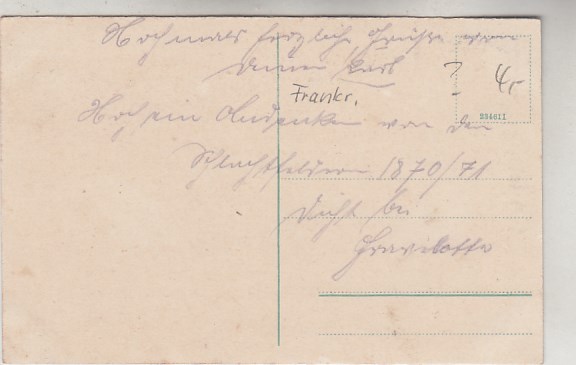 Nochmals herzliche Grüße von
deinem Karl
? 4,-
Frankr.
334611
Noch ein Andenken von den
Schlachtfeldern 1870/71
dicht bei
Gravelotte